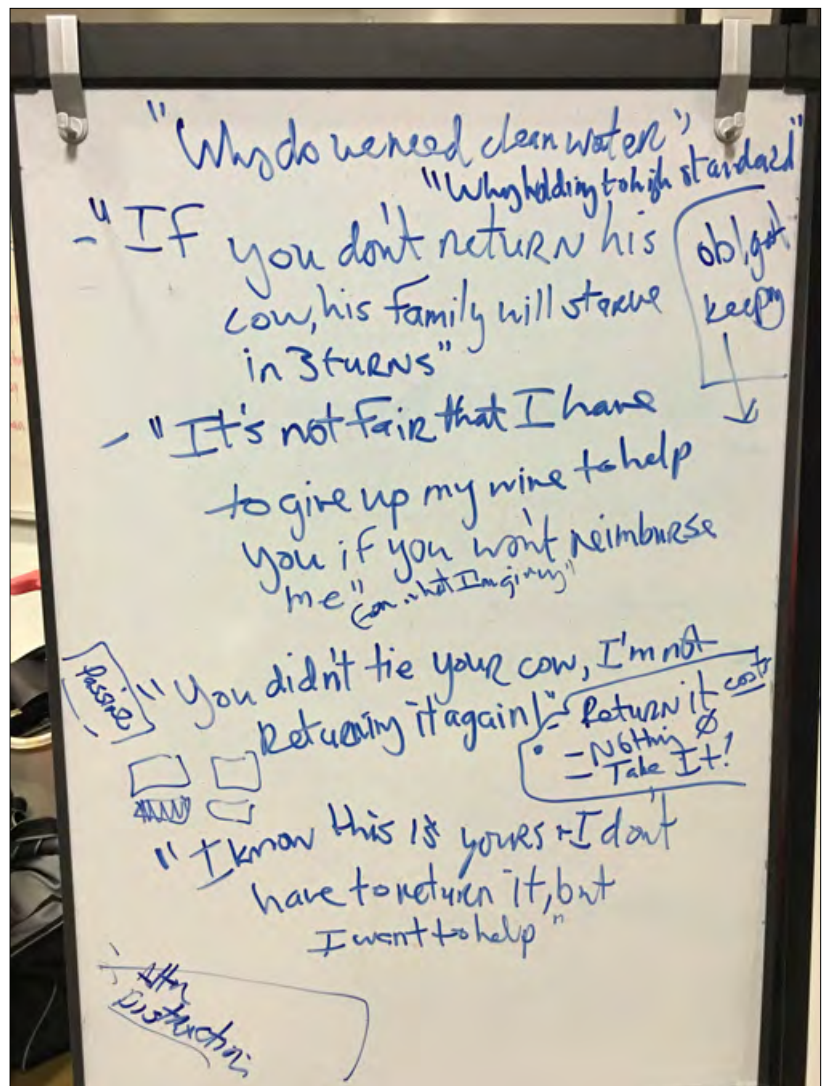 "Why do we need clean water"
"Why holding to high standard"
- "If you don't return his
cow, his family will starve
in 3 turns"
obligat
keepg
- "It's not fair that I have
to give up my wine to help
you if you won't reimburse
me"
Passive
"You didn't tie your cow, I'm not
Returning it again!"
- Return it costs
- Nothing Ø
- Take It!
"I know this is yours + I don't
have to return it, but
I want to help"
Attn
Distraction